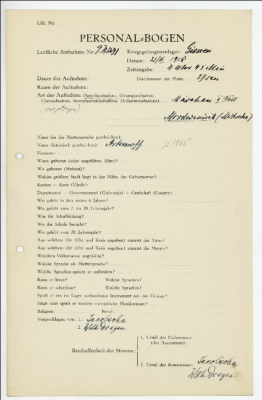 Lfd. Nr.
PERSONAL-BOGEN
Lautliche Aufnahme Nr.: Kriegsgefangenenlager: Giessen
Datum: 1918
Zeitangabe: 4 Uhr 45 Min
Dauer der Aufnahme: Durchmesser der Platte: 27 cm
Raum der Aufnahme:
Art der Aufnahme (Sprechaufnahme, Gesangsaufnahme, Märchen
Choraufnahme, Instrumentalaufnahme, Orchesteraufnahme):
Name (in der Muttersprache geschrieben):
Name (lateinisch geschrieben):
Vorname:
Wann geboren (oder ungefähres Alter)?
Wo geboren (Heimat)?
Welche größere Stadt liegt in der Nähe des Geburtsortes?
Kanton — Kreis (Ujezd):
Departement — Gouvernement (Gubernija) — Grafschaft (County):
Wo gelebt in den ersten 6 Jahren?
Wo gelebt vom 7. bis 20. Lebensjahr?
Was für Schulbildung?
Wo die Schule besucht?
Wo gelebt vom 20. Lebensjahr?
Aus welchem Ort (Ort und Kreis angeben) stammt der Vater?
Aus welchem Ort (Ort und Kreis angeben) stammt die Mutter?
Welchem Volksstamm angehörig?
Welche Sprache als Muttersprache?
Welche Sprachen spricht er außerdem?
Kann er lesen? Welche Sprachen?
Kann er schreiben? Welche Sprachen?
Spielt er ein im Lager vorhandenes Instrument aus der Heimat?
Singt oder spielt er modern europäische Musikweisen?
Religion: Beruf:
Vorgeschlagen von: 1. Jacobsohn
2. Wilh. Doegen
Beschaffenheit der Stimme:
1. Urteil des Fachmannes
(des Assistenten):
2. Urteil des Kommissars: Jacobsohn
Wilh. Doegen